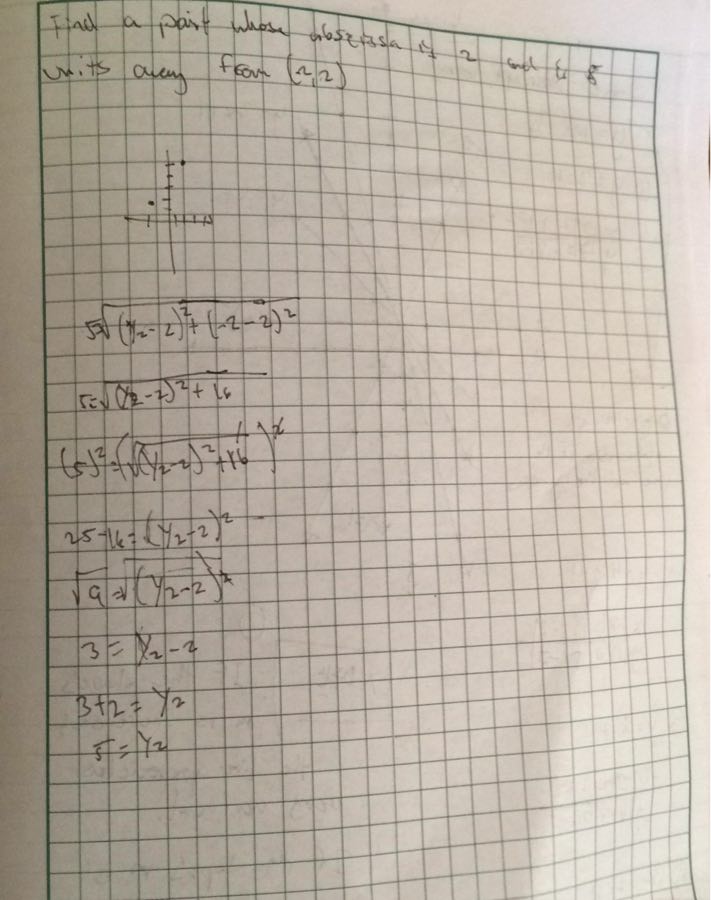 Find a point whose abszissa is 2 and is 5
units away from (-2,2)
5=√(y₂-2)²+(-2-2)²
5=√(y₂-2)²+16
(5)²=(√(y₂-2)²+16)²
25-16=(y₂-2)²
√9=√(y₂-2)²
3=y₂-2
3+2=y₂
5=y₂